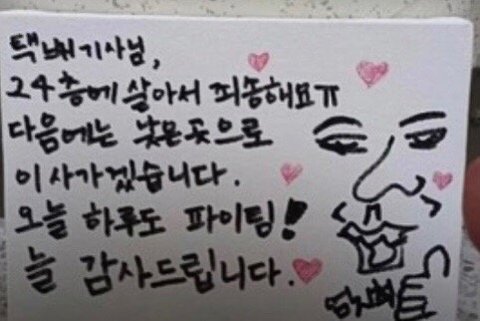 택배기사님,
24층에 살아서 죄송해요ㅠ
다음에는 낮은곳으로
이사가겠습니다.
오늘 하루도 파이팅!
늘 감사드립니다.
엄지척